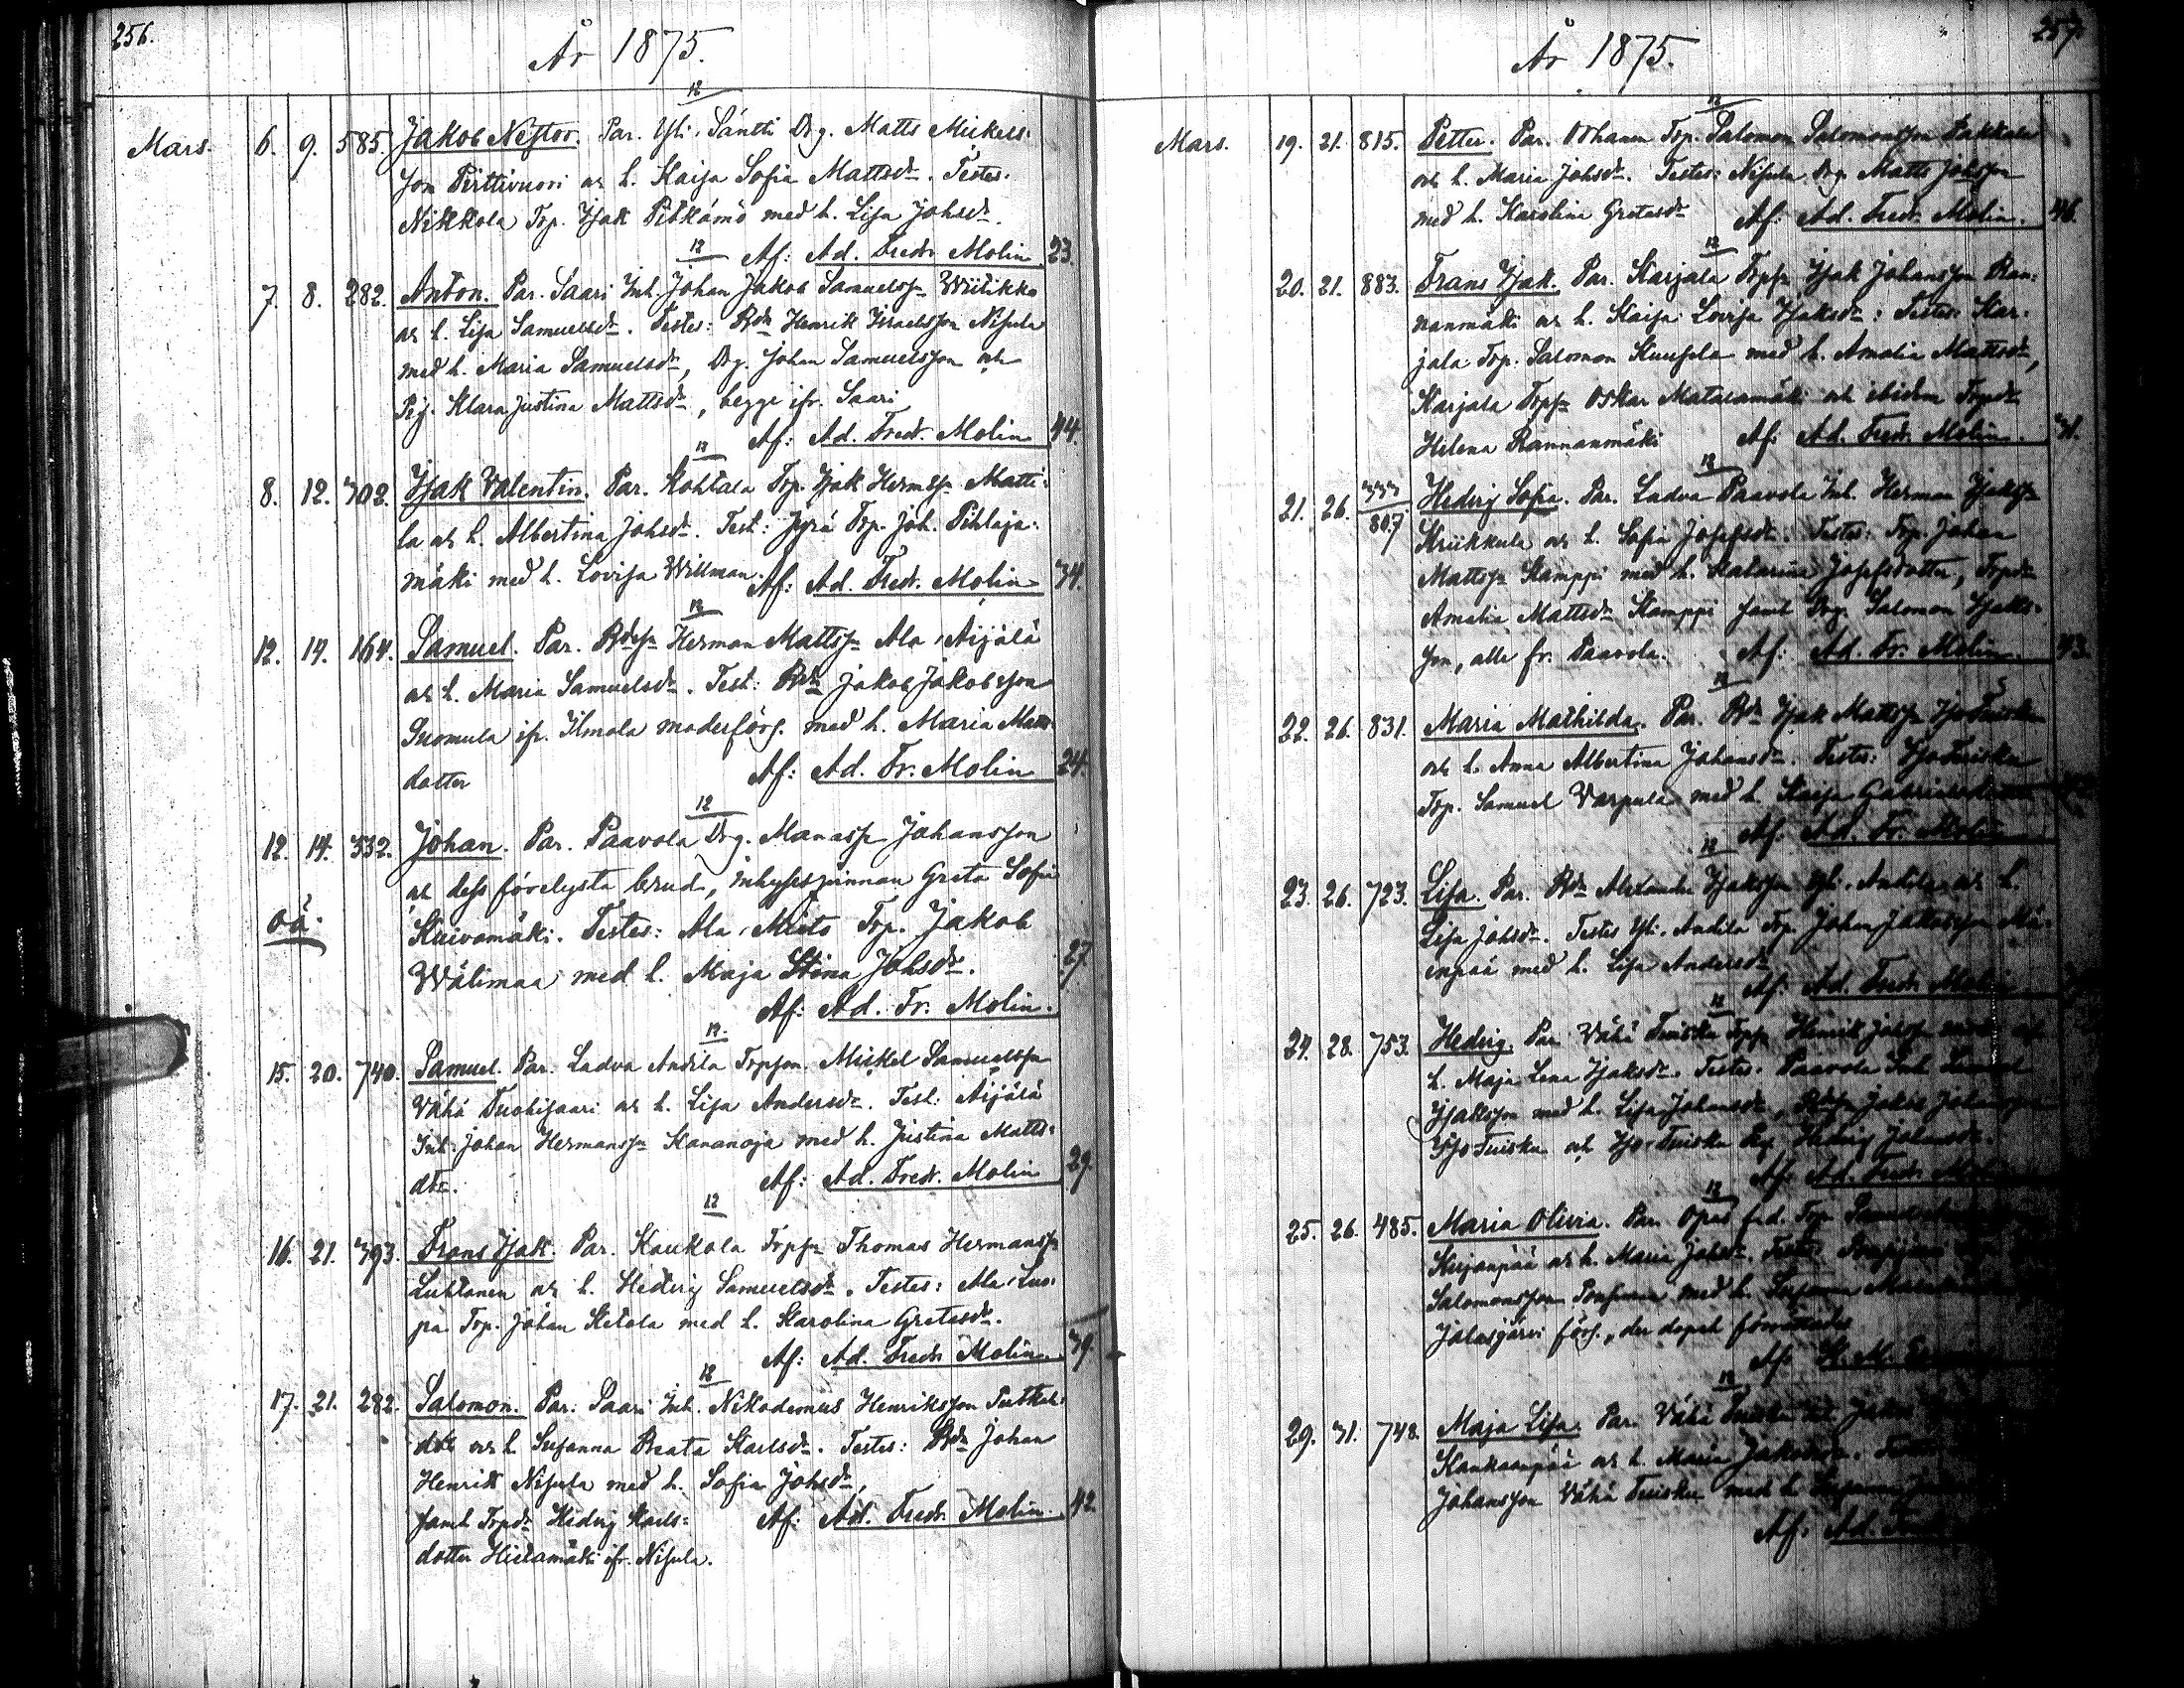 256.
År 1875.
12
Mars. 6. 9. 585. Jakob Nestor. Par. Yli-Säntti Drg. Matts Mickels-
son Pirttivuori o. h. Kaisa Sofia Mattsdr. Testes.
Nikkola Trp. Isak Pitkämö med h. Lisa Johsdr.
Af: Ad. Fredr. Molin. 23.
12
7. 8. 282. Anton. Par. Saari Inh. Johan Jakob Samuelsson Wiitikko
o. h. Lisa Samuelsdr. Testes: Bdn Henrik Israelsson Nisula
med h. Maria Samuelsdr, Drg. Johan Samuelsson och
Pig. Klara Justina Mattsdr, begge ifr. Saari
Af: Ad. Fredr. Molin 44.
12
8. 12. 302. Isak Valentin. Par. Kohtala Trp. Isak Hermss. Matti-
la o. h. Albertina Johsdr. Test: Jyrä Trp. Joh. Pihlaja-
mäki med h. Lovisa Willman. Af: Ad. Fredr. Molin 34.
12
12. 14. 164. Samuel. Par. Bdss. Herman Mattss. Ala-Äijälä
o. h. Maria Samuelsdr. Test: Bdn Jakob Jakobsson
Suomela ifr. Ilmola moderförs. med h. Maria Matts-
dotter Af: Ad. Fr. Molin 24.
12
12. 14. 332. Johan. Par. Paavola Drg. Manass. Johansson
o. dess förelysta brud, inhysespinnan Greta Sofia
oä. Kuivamäki. Testes: Ala-Mieto Trp. Jakob
Wälimaa med h. Maja Stina Johsdr. 27.
Af: Ad. Fr. Molin.
12.
15. 20. 740. Samuel. Par. Ladva Andila Trpson. Mickel Samuelsson
Vähä Tuohisaari o. h. Lisa Andersdr. Test: Äijälä
Inh. Johan Hermanss. Kananoja med h. Justina Matts-
dtr. Af: Ad. Fredr. Molin 29.
12
16. 21. 393. Frans Isak. Par. Kaukola Trpss. Thomas Hermanss.
Luhtanen o. h. Hedvig Samuelsdr. Testes: Ala-Luo-
pa Trp. Johan Ketola med h. Karolina Gretasdr.
Af: Ad. Fredr. Molin. 39.
12
17. 21. 282. Salomon. Par. Saari Inh. Nikodemus Henriksson
o. h. Susanna Beata Karlsdr. Testes: Bdn Johan
Henrik Nisula med h. Sofia Johsdr,
samt Trpdr Hedvig Karls- Af: Ad. Fredr. Molin. 42.
dotter Hietamäki ifr. Nisula.
257.
År 1875.
12
Mars. 19. 21. 815. Petter. Par. Trp. Salomon Salomonsson Pakkala
och h. Maria Johsdr. Testes: Nisula Drg. Matts Johsson
med h. Karolina Gretasdr Af: Ad. Fredr. Molin. 46.
12
20. 21. 883. Frans Isak. Par. Karjala Trpss. Isak Johansson Ran-
nanmäki o. h. Kaisa Lovisa Isaksdr: Testes: Kar-
jala Trp. Salomon Kuusela med h. Amalia Mattsdr,
Karjala Trpss. Oskar Matalamäki och ibidem Trpdr
Helena Rannanmäki Af: Ad. Fredr. Molin. 31.
12
21. 26. 333/807 Hedvig Sofia. Par. Ladva Paavola Inh. Herman Isakss.
Kriikkula o. h. Sofia Josefsdr. Testes: Trp. Johan
Mattss. Kamppi med h. Katarina Josefsdotter, Trpdr
Amalia Mattsdr Kamppi samt Drg. Salomon Isaks-
son, alla fr. Paavola. Af: Ad. Fr. Molin. 43.
12
22. 26. 831. Maria Mathilda. Par. Bdn Isak Mattss. Iso Tuisku
och h. Anna Albertina Johansdr. Testes: Iso Tuisku
Trp. Samuel Varpula med h. Kaisa
Af: Ad. Fr. Molin
12
23. 26. 723. Lisa. Par. Bdn Alexander Isaksson Yli-Andila o. h.
Lisa Johsdr. Testes Yli-Andila Trp. Johan Jakobsson Mä-
enpää med h. Lisa Andersdr
Af: Ad. Fredr. Molin
12
24. 28. 753. Hedvig. Par. Vähä Tuisku Trpss. Henrik
h. Maja Lena Isaksdr. Testes. Paavola Inh.
Isaksson med h. Lisa Johansdr,
Iso Tuisku och Iso-Tuisku Pig. Hedvig Johansdr.
Af: Ad. Fredr. Molin
12
25. 26. 485. Maria Olivia. Par. Opas f. d. Trp.
Kujanpää o. h. Maria Johsdr. Testes
Salomonsson med h. Susanna
Jalasjärvi förs., der dopet förrättades
Af:
12
29. 31. 748. Maja Lisa. Par. Vähä Tuisku
Kankaanpää o. h. Maria Jakobsdr.
Johansson Vähä Tuisku med h.
Af: Ad.